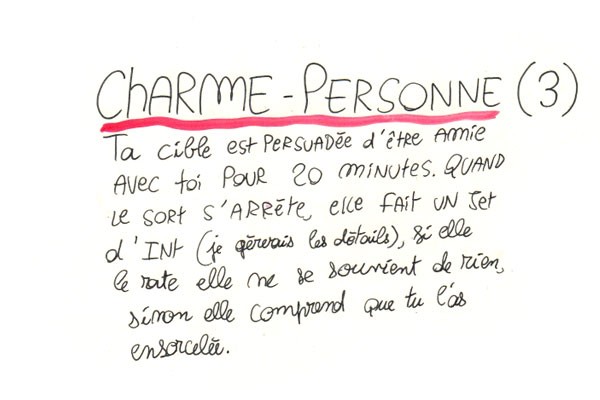 CHARME-PERSONNE (3)
Ta cible est PERSUADÉE d'être AMIE
AVEC toi POUR 20 MINUTES. QUAND
LE SORT S'ARRÊTE, elle FAIT UN Jet
d'INT (je gèrerais les détails), si elle
le rate elle ne se souvient de rien,
sinon elle comprend que tu l'as
ensorcelée.